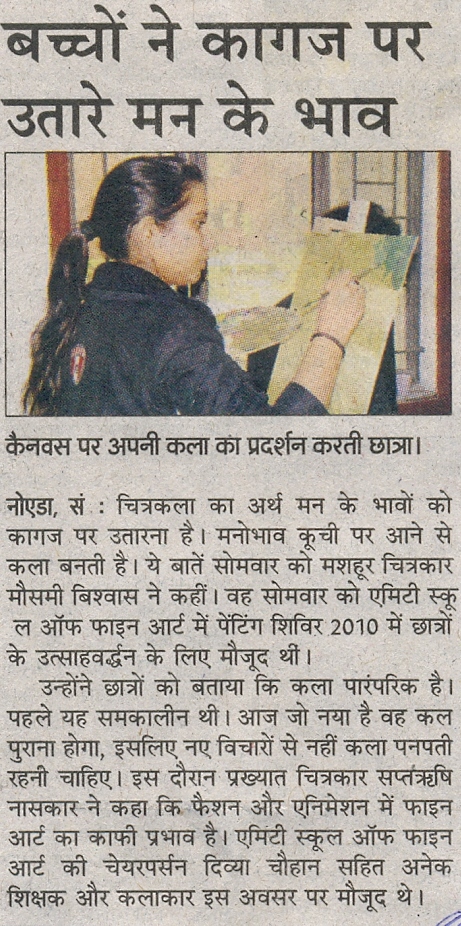 बच्चों ने कागज पर
उतारे मन के भाव
कैनवस पर अपनी कला का प्रदर्शन करती छात्रा।
नोएडा, सं : चित्रकला का अर्थ मन के भावों को
कागज पर उतारना है। मनोभाव कूची पर आने से
कला बनती है। ये बातें सोमवार को मशहूर चित्रकार
मौसमी बिश्वास ने कहीं। वह सोमवार को एमिटी स्कू
ल ऑफ फाइन आर्ट में पेंटिंग शिविर 2010 में छात्रों
के उत्साहवर्द्धन के लिए मौजूद थीं।
उन्होंने छात्रों को बताया कि कला पारंपरिक है।
पहले यह समकालीन थी। आज जो नया है वह कल
पुराना होगा, इसलिए नए विचारों से नहीं कला पनपती
रहनी चाहिए। इस दौरान प्रख्यात चित्रकार सप्तऋषि
नासकार ने कहा कि फैशन और एनिमेशन में फाइन
आर्ट का काफी प्रभाव है। एमिटी स्कूल ऑफ फाइन
आर्ट की चेयरपर्सन दिव्या चौहान सहित अनेक
शिक्षक और कलाकार इस अवसर पर मौजूद थे।